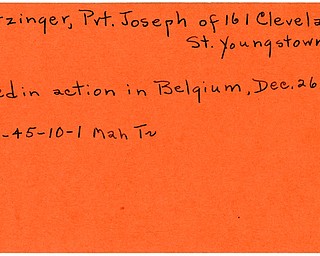 zinger, Pvt. Joseph of 161 Clevela
St. Youngstown
ed in action in Belgium, Dec. 26
-45-10-1 Mah Tv